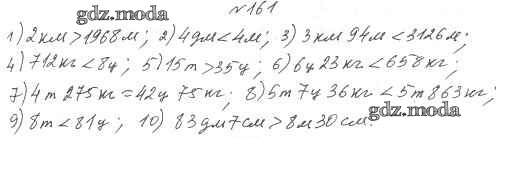 №161
gdz.moda
1) 2км > 1968м; 2) 4дм < 4м; 3) 3км 94м < 3126м;
4) 712кг < 8ц; 5) 15т > 35ц; 6) 6ц 23кг < 658кг;
7) 4т 275кг = 42ц 75кг; 8) 5т 7ц 36кг < 5т 863кг;
gdz.moda
9) 8т < 81ц; 10) 83дм 7см > 8м 30см.